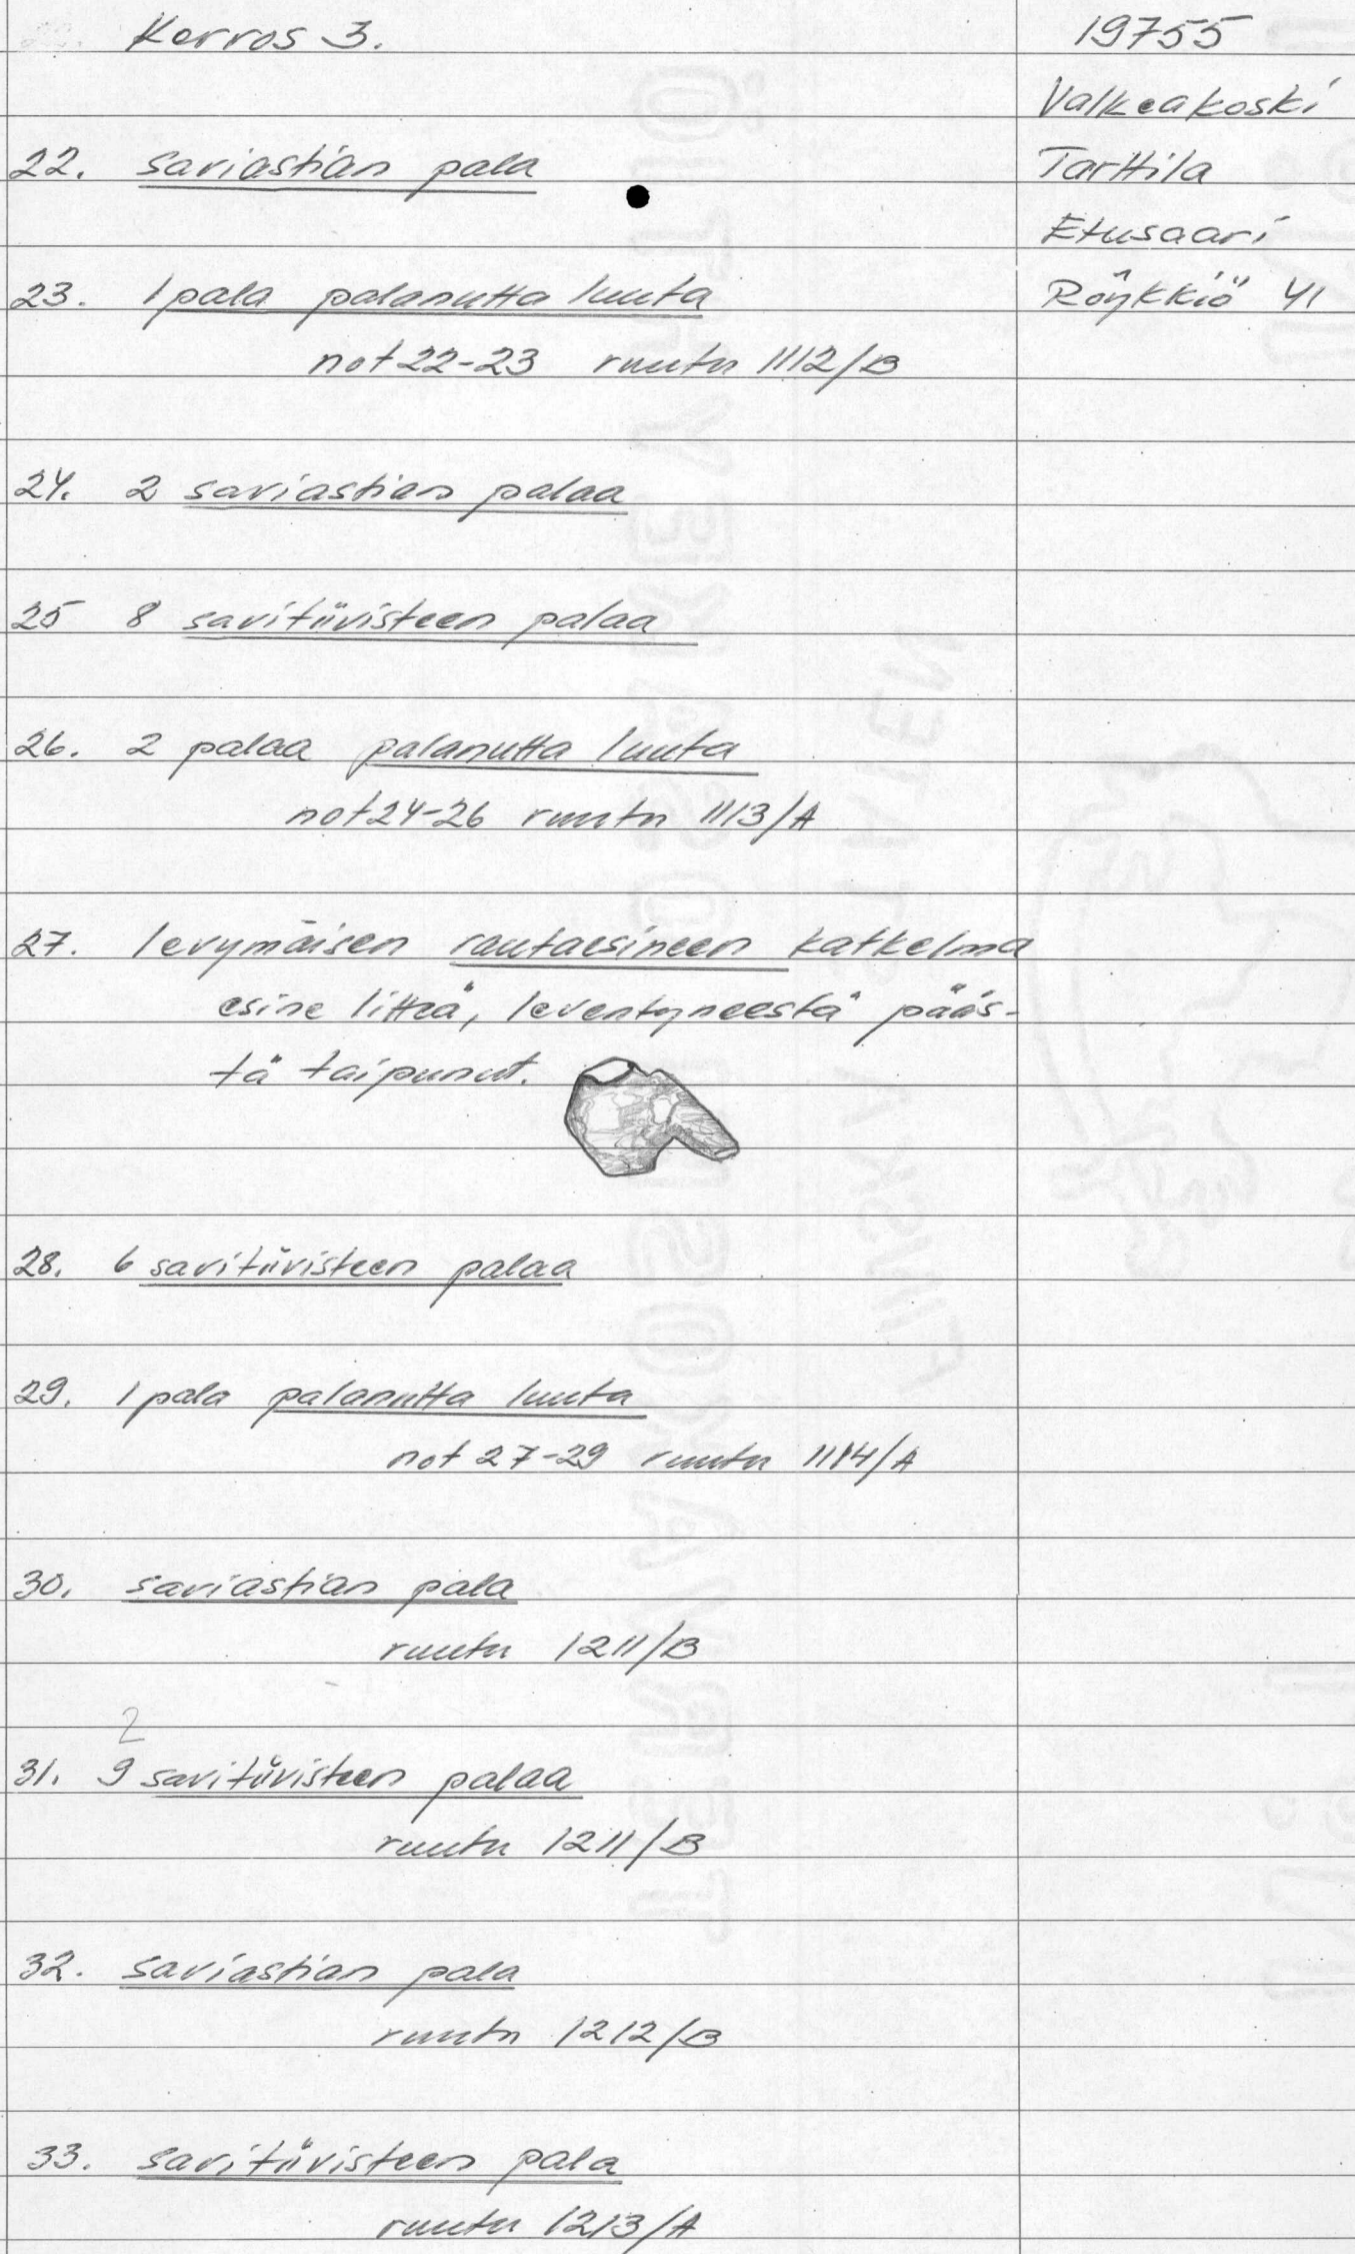 Kerros 3.
19755
Valkeakoski
Tarttila
Etusaari
Röykkiö 41
22. saviastian pala
23. 1 pala palanutta luuta
not 22-23 ruutu 1112/B
24. 2 saviastian palaa
25 8 savitiivisteen palaa
26. 2 palaa palanutta luuta
not 24-26 ruutu 1113/A
27. levymäisen rautaesineen katkelma
esine litteä, leventyneestä pääs-
tä taipunut.
28. 6 savitiivisteen palaa
29. 1 pala palanutta luuta
not 27-29 ruutu 1114/A
30. saviastian pala
ruutu 1211/B
2
31. 9 savitiivisteen palaa
ruutu 1211/B
32. saviastian pala
ruutu 1212/B
33. savitiivisteen pala
ruutu 1213/A